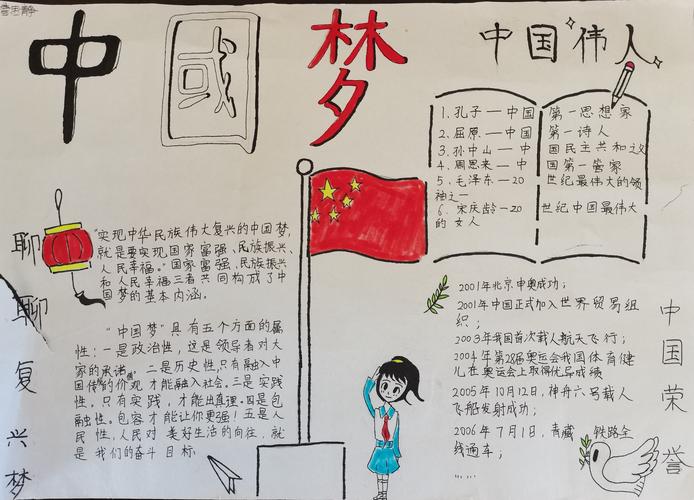 中國梦
中国伟人
1.孔子—中国 第一思想家
2.屈原—中国 第一诗人
3.孙中山—中 国民主共和之父
4.周恩来—中 国第一管家
5、毛泽东—20 世纪最伟大的领
袖之一
6.宋庆龄—20 世纪中国最伟大
的女人
聊
聊
复
兴
梦
"实现中华民族伟大复兴的中国梦,
就是要实现国家富强、民族振兴、
人民幸福。"国家富强,民族振兴
和人民幸福三者共同构成了中
国梦的基本内涵。
"中国梦"具有五个方面的属
性:一是政治性,这是领导者对大
家的承诺。二是历史性,只有融入中
国传的价观,才能融入社会。三是实践
性。只有实践,才能出真理。四是包
融性。包容才能让你更强!五是人
民性,人民对美好生活的向往,就
是我们的奋斗目标。
2001年北京申奥成功;
2001年中国正式加入世界贸易组
织;
2003年我国首次载人航天飞行;
2004年第28届奥运会我国体育健
儿在奥运会上取得优异成绩
2005年10月12日,神舟六号载人
飞船发射成功;
2006年7月1日,青藏铁路全
线通车;
……
中
国
荣
誉